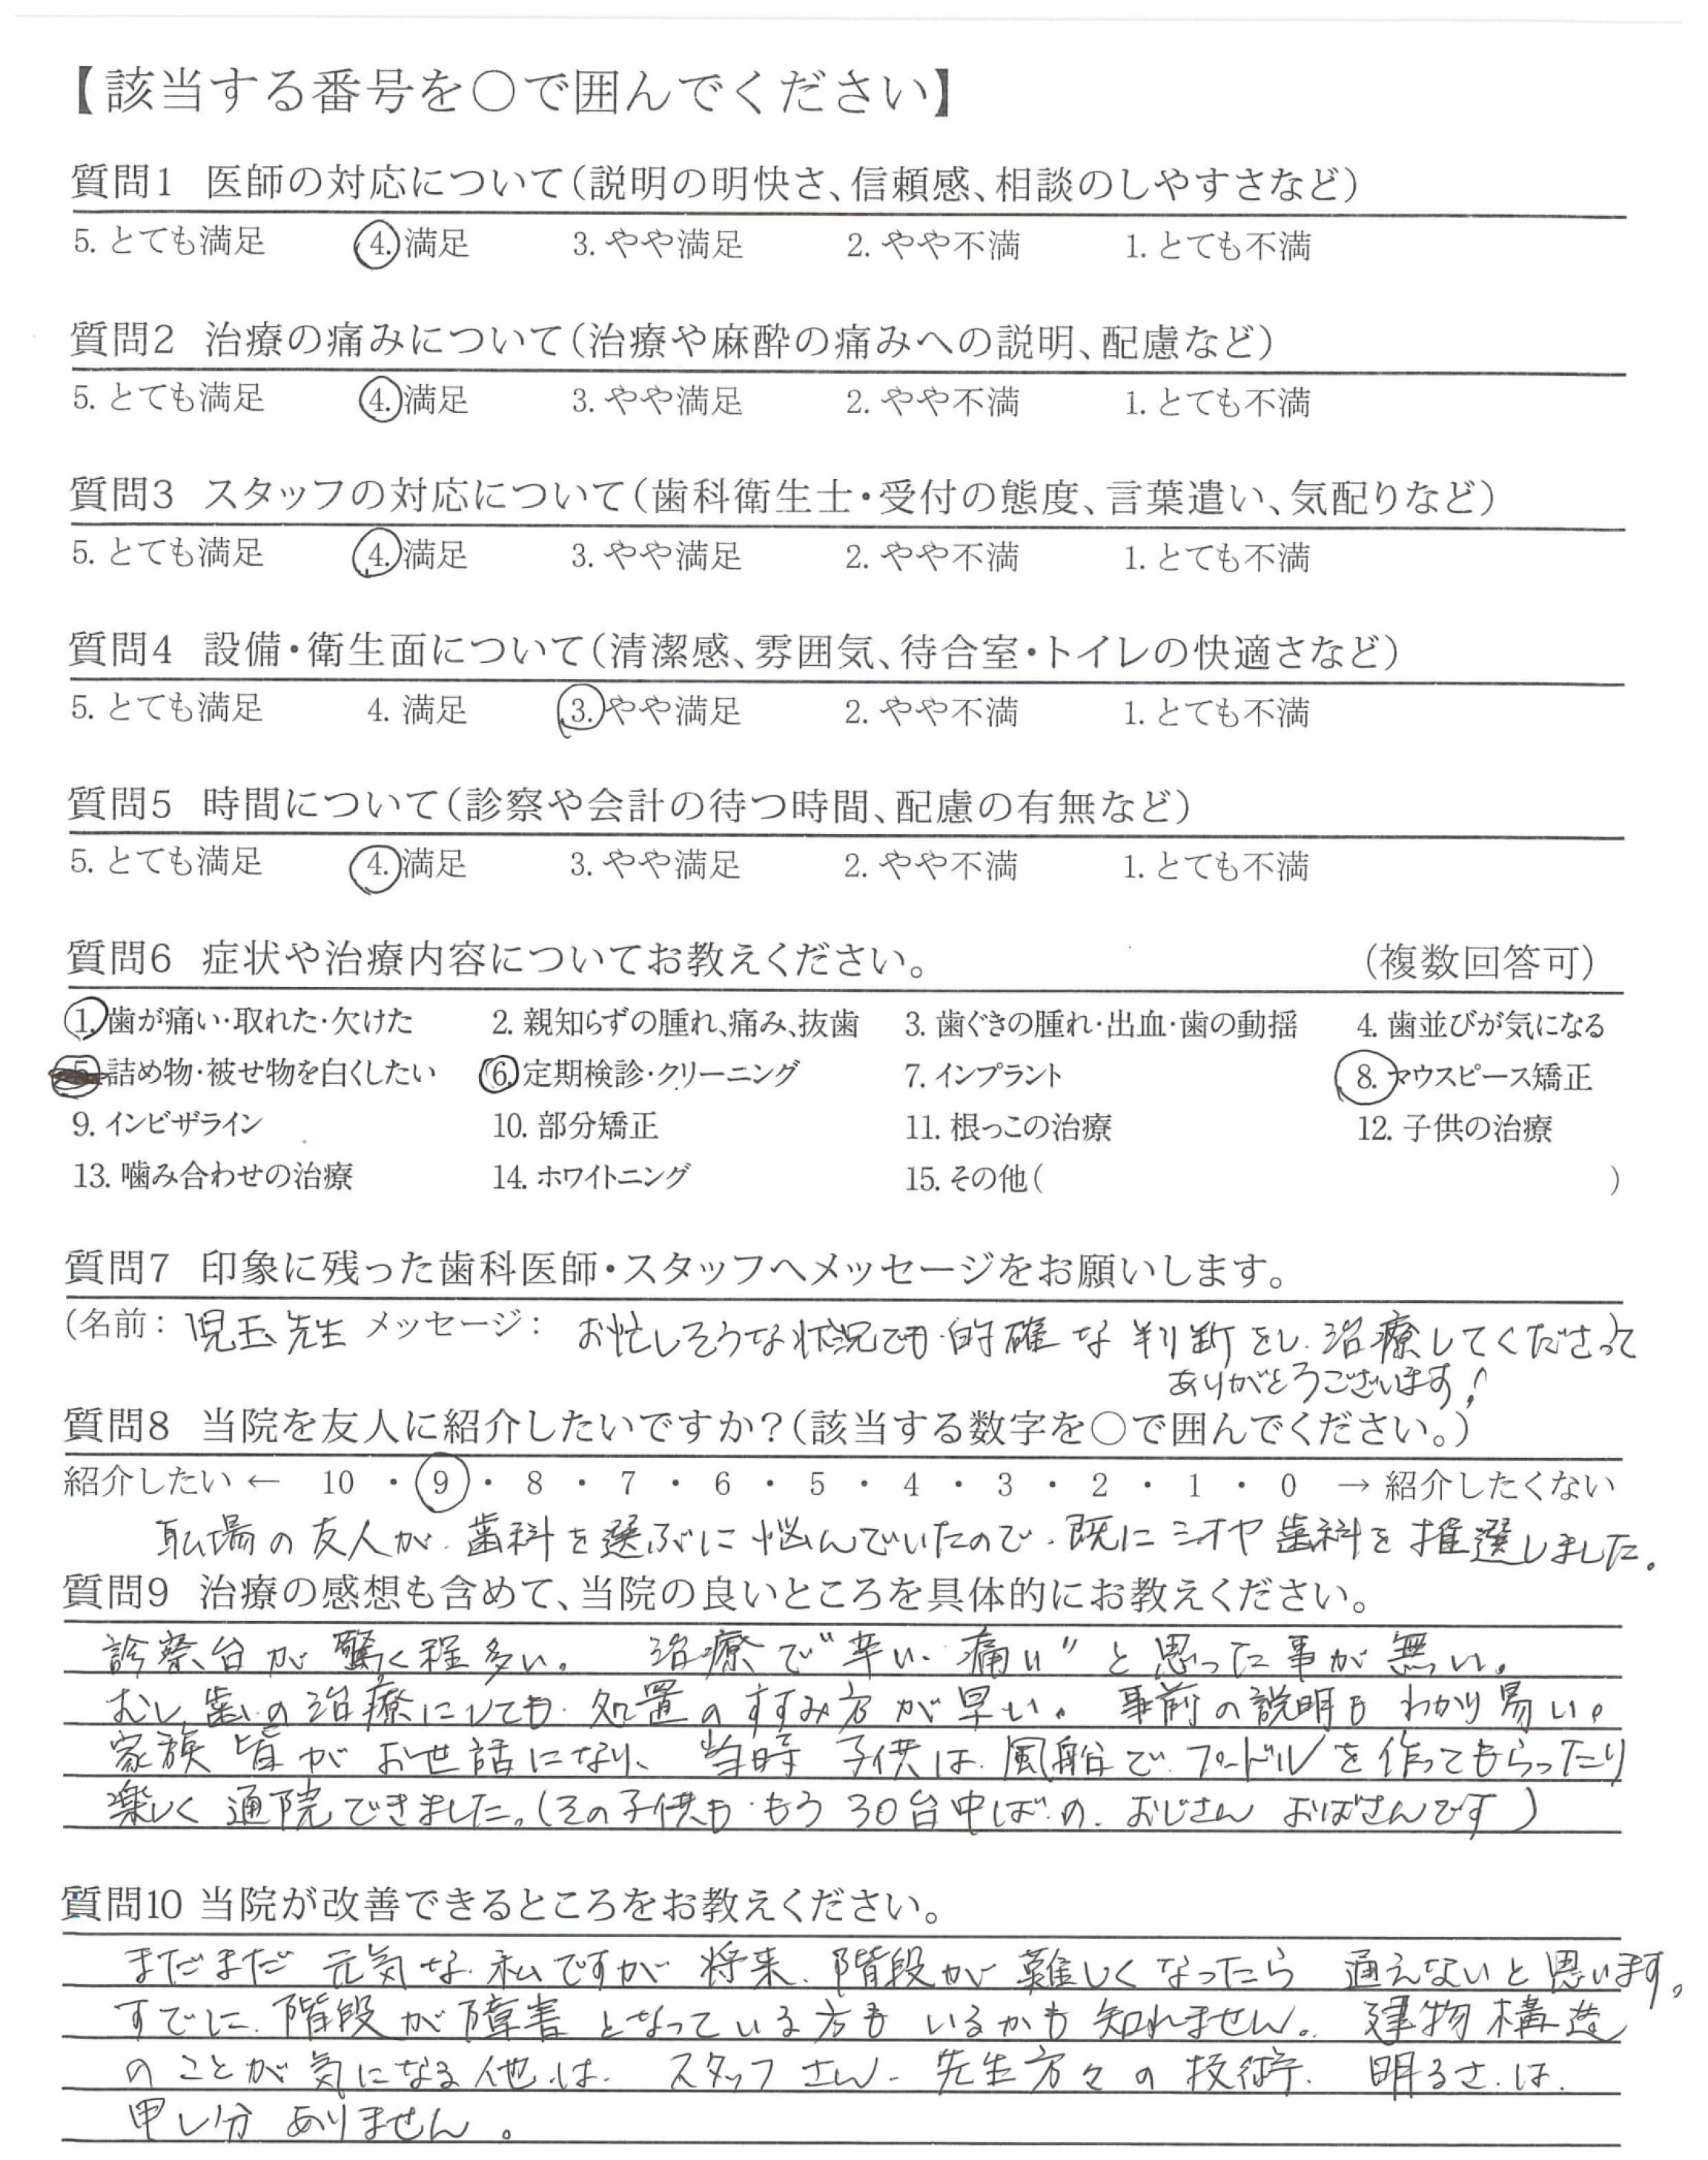 【該当する番号を○で囲んでください】
質問1 医師の対応について(説明の明快さ、信頼感、相談のしやすさなど)
5. とても満足 4. 満足 3. やや満足 2. やや不満 1. とても不満
質問2 治療の痛みについて(治療や麻酔の痛みへの説明、配慮など)
5. とても満足 4. 満足 3. やや満足 2. やや不満 1. とても不満
質問3 スタッフの対応について(歯科衛生士・受付の態度、言葉遣い、気配りなど)
5. とても満足 4. 満足 3. やや満足 2. やや不満 1. とても不満
質問4 設備・衛生面について(清潔感、雰囲気、待合室・トイレの快適さなど)
5. とても満足 4. 満足 3. やや満足 2. やや不満 1. とても不満
質問5 時間について(診察や会計の待つ時間、配慮の有無など)
5. とても満足 4. 満足 3. やや満足 2. やや不満 1. とても不満
質問6 症状や治療内容についてお教えください。 (複数回答可)
1. 歯が痛い・取れた・欠けた 2. 親知らずの腫れ、痛み、抜歯 3. 歯ぐきの腫れ・出血・歯の動揺 4. 歯並びが気になる
5. 詰め物・被せ物を白くしたい 6. 定期検診・クリーニング 7. インプラント 8. マウスピース矯正
9. インビザライン 10. 部分矯正 11. 根っこの治療 12. 子供の治療
13. 噛み合わせの治療 14. ホワイトニング 15. その他( )
質問7 印象に残った歯科医師・スタッフへメッセージをお願いします。
(名前: 児玉先生 メッセージ: お忙しそうな状況でも的確な判断をし、治療してくださって
ありがとうございます!
質問8 当院を友人に紹介したいですか?(該当する数字を○で囲んでください。)
紹介したい ← 10 ・ 9 ・ 8 ・ 7 ・ 6 ・ 5 ・ 4 ・ 3 ・ 2 ・ 1 ・ 0 → 紹介したくない
職場の友人が、歯科を選ぶに悩んでいたので、既にシオヤ歯科を推選しました。
質問9 治療の感想も含めて、当院の良いところを具体的にお教えください。
診察台が驚く程多い。 治療で“辛い、痛い”と思った事が無い。
むし歯の治療にしても、処置のすすみ方が早い。 事前の説明もわかり易い。
家族皆がお世話になり、当時子供は、風船でプードルを作ってもらったり
楽しく通院できました。(その子供も、もう30台中ばの、おじさん おばさんです)
質問10 当院が改善できるところをお教えください。
まだまだ元気な私ですが将来、階段が難しくなったら通えないと思います。
すでに、階段が障害となっている方もいるかも知れません。 建物構造
のことが気になる他は、スタッフさん、先生方々の技術、明るさは、
申し分ありません。